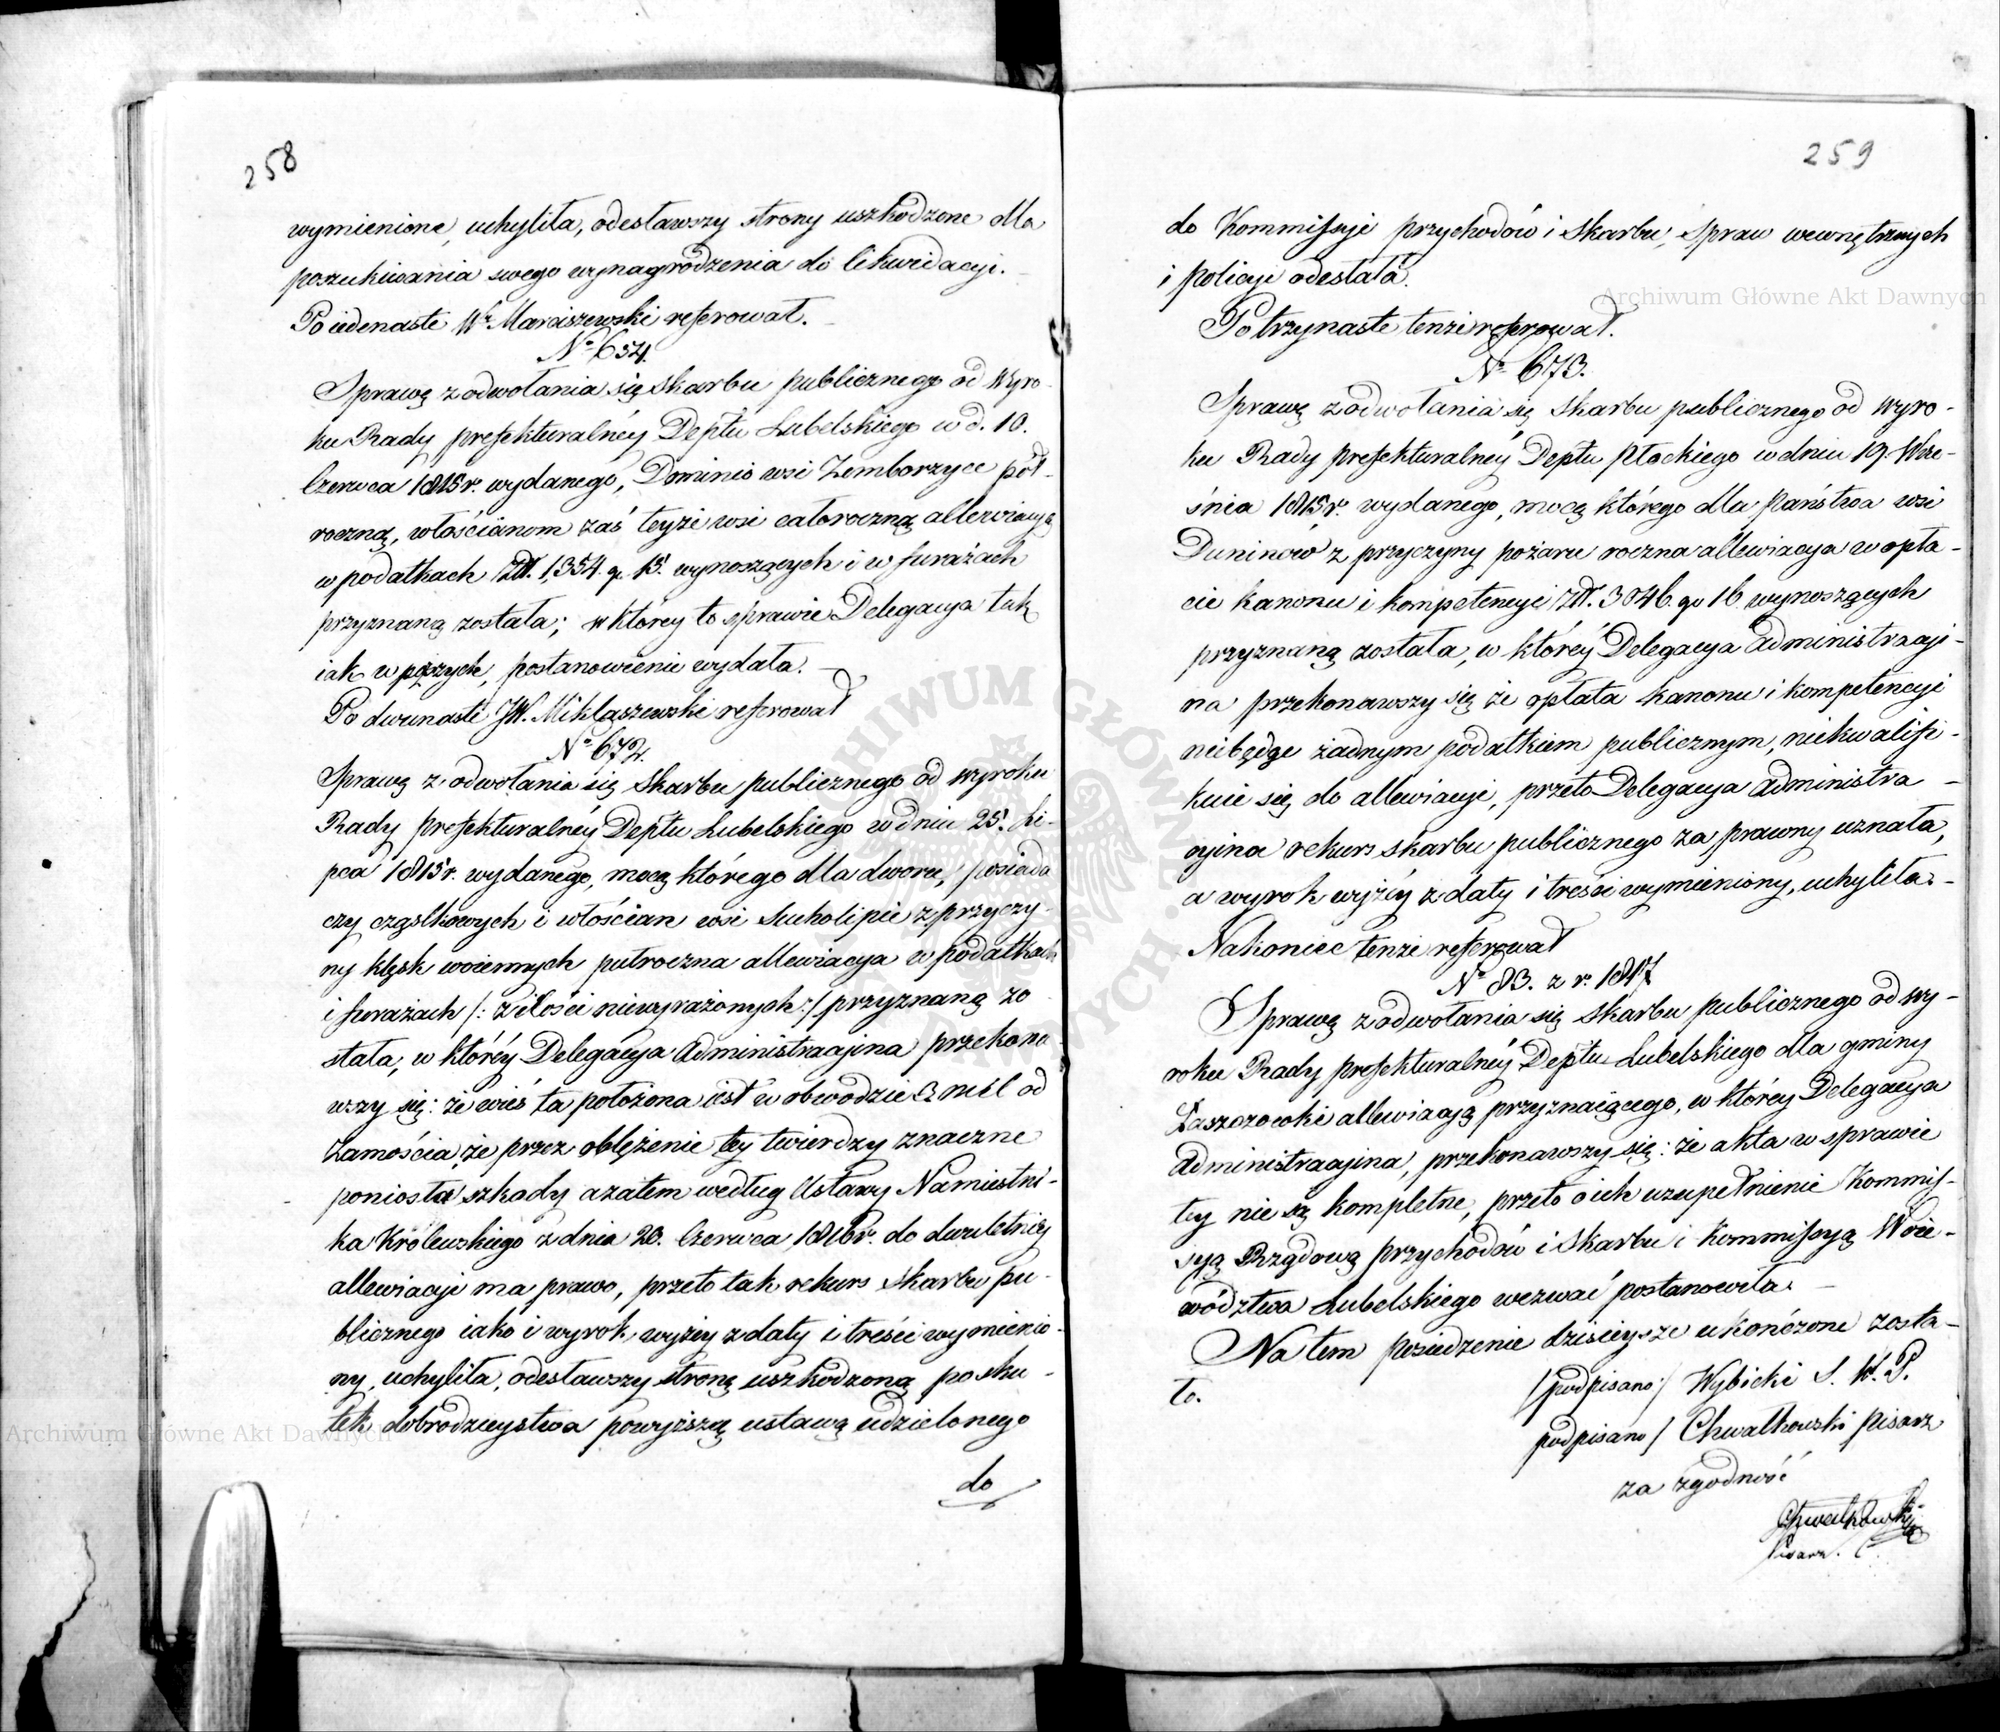 258
wymienione, uchyliła, odesławszy strony uszkodzone dla
poszukiwania swego wynagrodzenia do likwidacyi.
Po iedenaste Wy Marciszewski referował.
No 654.
Sprawę z odwołania się Skarbu publicznego od Wyro-
ku Rady prefekturalnéy Deptu Lubelskiego w d. 10.
Czerwca 1815 r. wydanego, Dominio wsi Zemborzyce pół-
roczną, włościanom zaś teyże wsi całoroczną allewiacyą
w podatkach Złł. 1,354. g. 15. wynoszących i w furażach
przyznaną została; w którey to sprawie Delegacya tak
iak w pszych, postanowienie wydała.
Po dwunaste JW. Miklaszewski referował
No 672.
Sprawę z odwołania się Skarbu publicznego od wyroku
Rady prefekturalnéy Deptu Lubelskiego w dniu 25. Li-
pca 1815 r. wydanego, mocą którego dla dworu, posiada
czy cząstkowych i włościan wsi Sucholipie z przyczy-
ny klęsk woiennych pułroczna allewiacya w podatkach
i furażach /: z ilości niewyrażonych :/ przyznaną zo
stała, w któréy Delegacya Administracyina przekona-
wszy się: że wieś ta położona iest w obwodzie 3 mil od
Zamościa, że przez oblężenie tey twierdzy znaczne
poniosła szkody a zatem według Ustawy Namiestni-
ka Królewskiego z dnia 20. Czerwca 1816 r. do dwuletniéy
allewiacyi ma prawo, przeto tak rekurs Skarbu pu-
blicznego iako i wyrok, wyżéy z daty i treści wymienio-
ny, uchyliła, odesławszy stronę uszkodzoną po sku-
tek dobrodzieystwa powyższą ustawą udzielonego
do
259
do Kommissyi przychodów i Skarbu, Spraw wewnętrznych
i policyi odesłała.
Po trzynaste tenże referował.
No 673.
Sprawę z odwołania się Skarbu publicznego od wyro-
ku Rady prefekturalnéy Deptu Płockiego w dniu 19. Wrze-
śnia 1815 r. wydanego, mocą którego dla Państwa wsi
Duninow z przyczyny pożaru roczna allewiacya w opła-
cie kanonu i kompetencyi Złł. 3046. gr 16 wynoszących
przyznaną została, w któréy Delegacya Administracyi-
na przekonawszy się że opłata kanonu i kompetencyi
niebędąc żadnym podatkiem publicznym, niekwalifi-
kuie się do allewiacyi, przeto Delegacya Administra-
cyina rekurs skarbu publicznego za prawny uznała,
a wyrok wyżéy z daty i treści wymieniony, uchyliła.
Nakoniec tenże referował
No 83. z r. 1817
Sprawę z odwołania się Skarbu publicznego od wy-
roku Rady prefekturalnéy Deptu Lubelskiego dla gminy
Łaszczowki allewiacyą przyznaiącego, w którey Delegacya
Administracyina, przekonawszy się: że akta w sprawie
tey nie są kompletne, przeto o ich uzupełnienie Kommis-
syą Rządową przychodów i Skarbu i Kommissyą Woie-
wództwa Lubelskiego wezwać postanowiła.
Na tem posiedzenie dzisieysze ukończone zosta-
ło.
/podpisano/ Wybicki S. W. P.
podpisano/ Chwalkowski Pisarz
za zgodność
Chwalkowski
Pisarz.
Archiwum Główne Akt Dawnych
Archiwum Główne Akt Dawnych